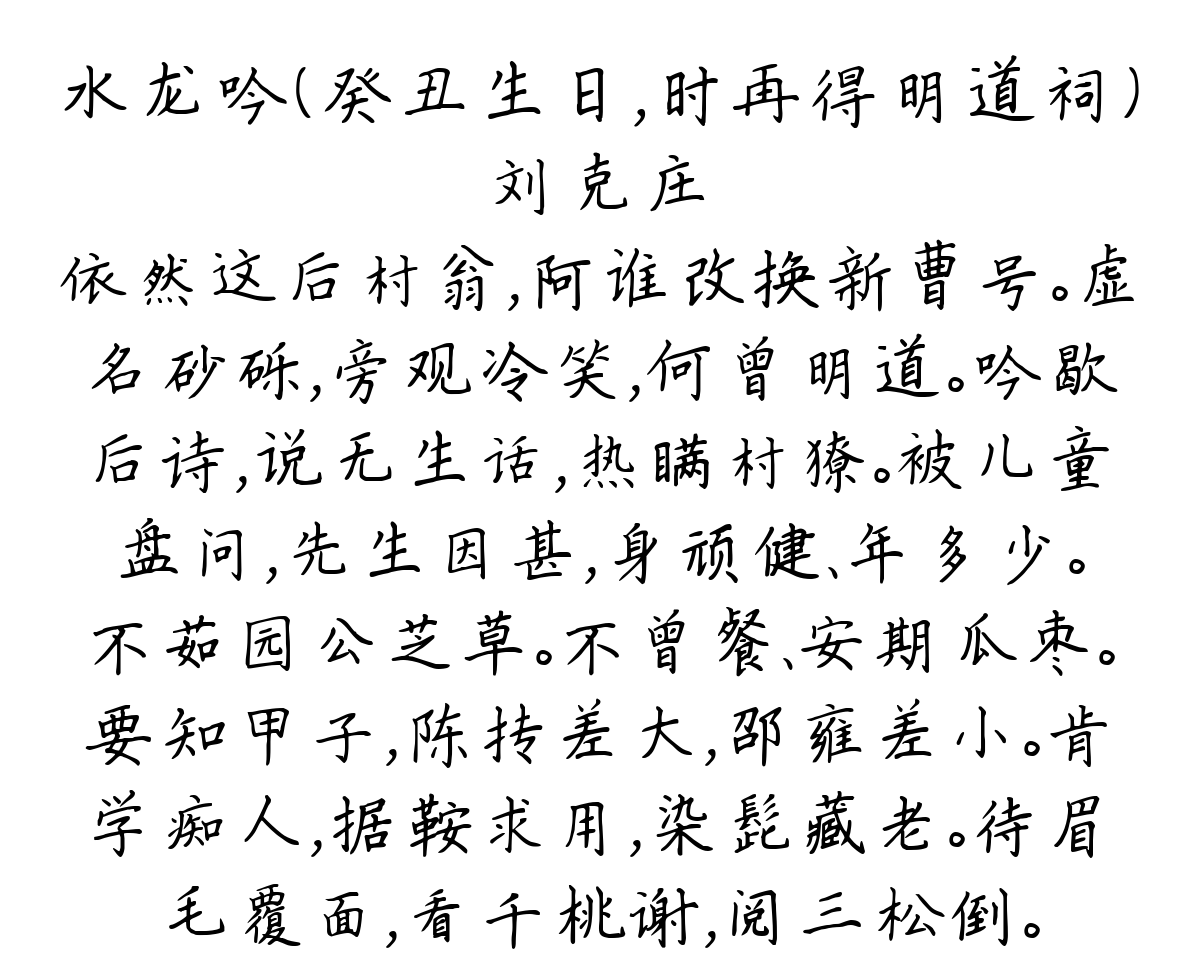 水龙吟(癸丑生日,时再得明道祠)
刘克庄
依然这后村翁,阿谁改换新曹号。虚
名砂砾,旁观冷笑,何曾明道。吟歇
后诗,说无生话,热瞒村獠。被儿童
盘问,先生因甚,身顽健、年多少。
不茹园公芝草。不曾餐、安期瓜枣。
要知甲子,陈抟差大,邵雍差小。肯
学痴人,据鞍求用,染髭藏老。待眉
毛覆面,看千桃谢,阅三松倒。